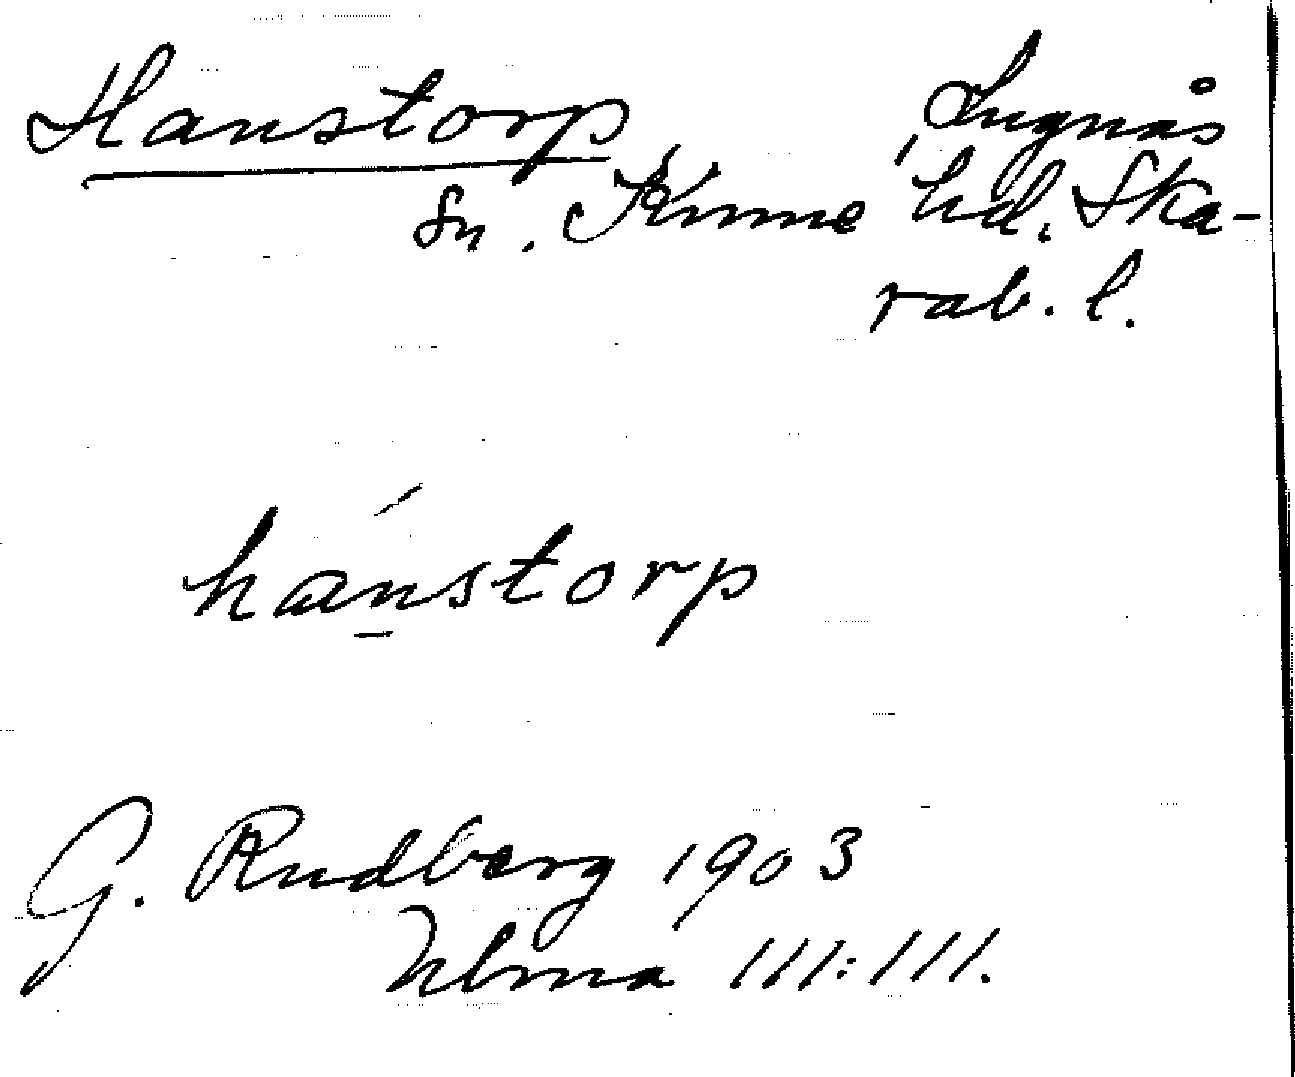 Hanstorp Lugnås
sn. Kinne hd. Ska-
rab. l.
hanstorp
G. Rudberg 1903
Ulma 111:111.